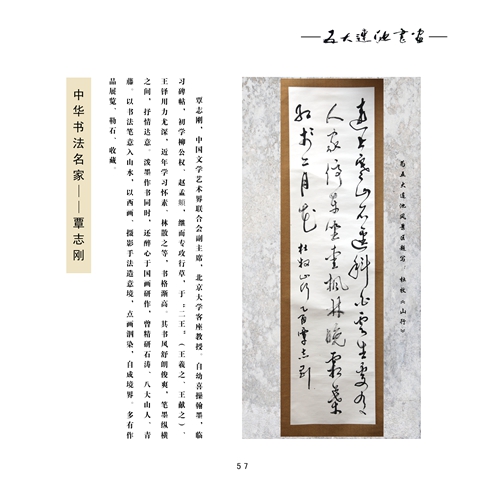 五大连池书画
为五大连池风景区题写 杜牧《山行》
远上寒山石径斜白云生处有
人家停车坐爱枫林晚霜叶
红于二月花 杜牧山行 乙酉覃志刚
中华书法名家——覃志刚
覃志刚，中国文学艺术界联合会副主席，北京大学客座教授。自幼喜操翰墨，临
习碑帖，初学柳公权、赵孟頫，继而专攻行草，于“二王”（王羲之、王献之）、
王铎用力尤深，近年学习怀素、林散之等，书格渐高。其书风舒朗俊爽，笔墨纵横
之间，抒情达意。泼墨作书同时，还醉心于国画研作，曾精研石涛、八大山人、青
藤。以书法笔意入山水，以西画、摄影手法造意境，点画洇染，自成境界。多有作
品展览、勒石、收藏。
57